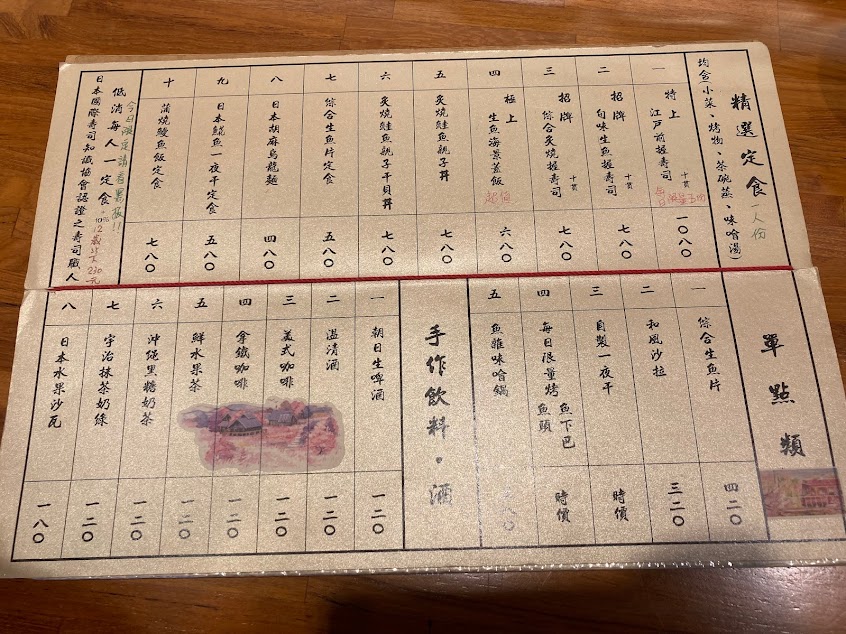 精選定食 一人份
均含(小菜、烤物、茶碗蒸、味噌湯)
一 特上 江戶前握壽司 十貫 每日限量五份 一〇八〇
二 招牌 旬味生魚握壽司 十貫 七八〇
三 招牌 綜合炙燒握壽司 十貫 七八〇
四 極上 生魚海景蓋飯 起伯 六八〇
五 炙燒鮭魚親子丼 七八〇
六 炙燒鮭魚親子干貝丼 七八〇
七 綜合生魚片定食 五八〇
八 日本胡麻烏龍麵 四八〇
九 日本鯤魚一夜干定食 五八〇
十 蒲燒鰻魚飯定食 七八〇
今日限定請看黑板!!
低消每人一定食。10% 12歲以下230元
日本國際壽司知識協會認證之壽司職人
單點類
一 綜合生魚片 四二〇
二 和風沙拉 三二〇
三 自製一夜干 時價
四 每日限量烤 魚下巴 魚頭 時價
五 魚雜味噌鍋 八〇
手作飲料。酒
一 朝日生啤酒 一二〇
二 溫清酒 一二〇
三 美式咖啡 一二〇
四 拿鐵咖啡 一二〇
五 鮮水果茶 一二〇
六 沖繩黑糖奶茶 一二〇
七 宇治抹茶奶綠 一二〇
八 日本水果沙瓦 一八〇